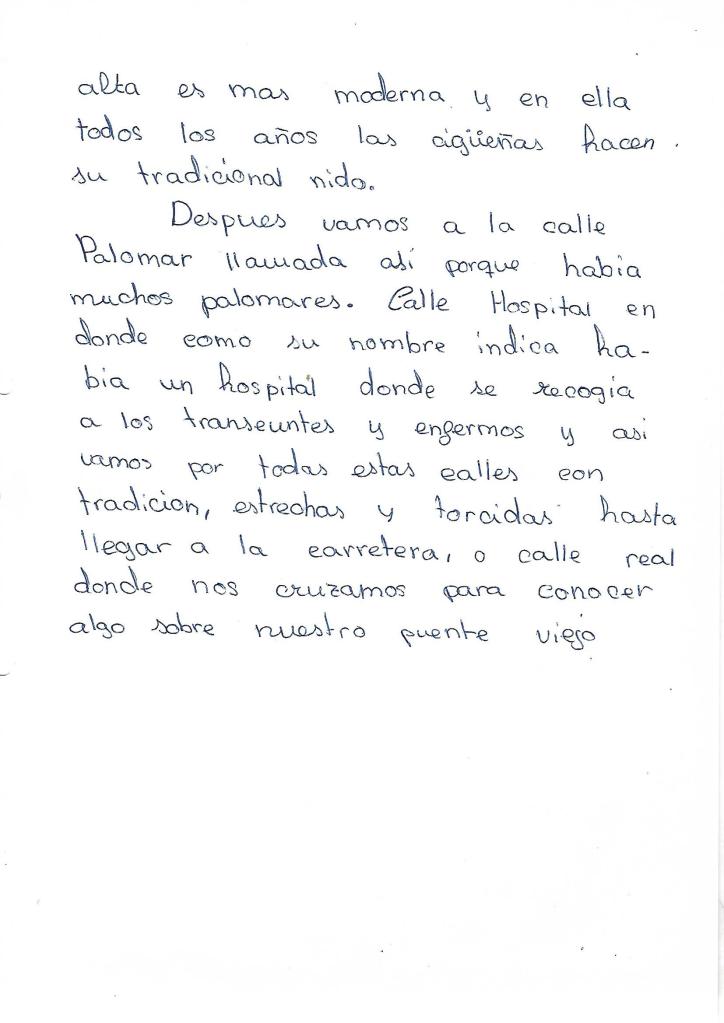 alta es mas moderna y en ella
todos los años las cigüeñas hacen.
su tradicional nido.
Despues vamos a la calle
Palomar llamada asi porque habia
muchos palomares. Calle Hospital en
donde como su nombre indica ha-
bia un hospital donde se recogia
a los transeuntes y enfermos y asi
vamos por todas estas calles con
tradicion, estrechas y torcidas hasta
llegar a la carretera, o calle real
donde nos cruzamos para conocer
algo sobre nuestro puente viejo